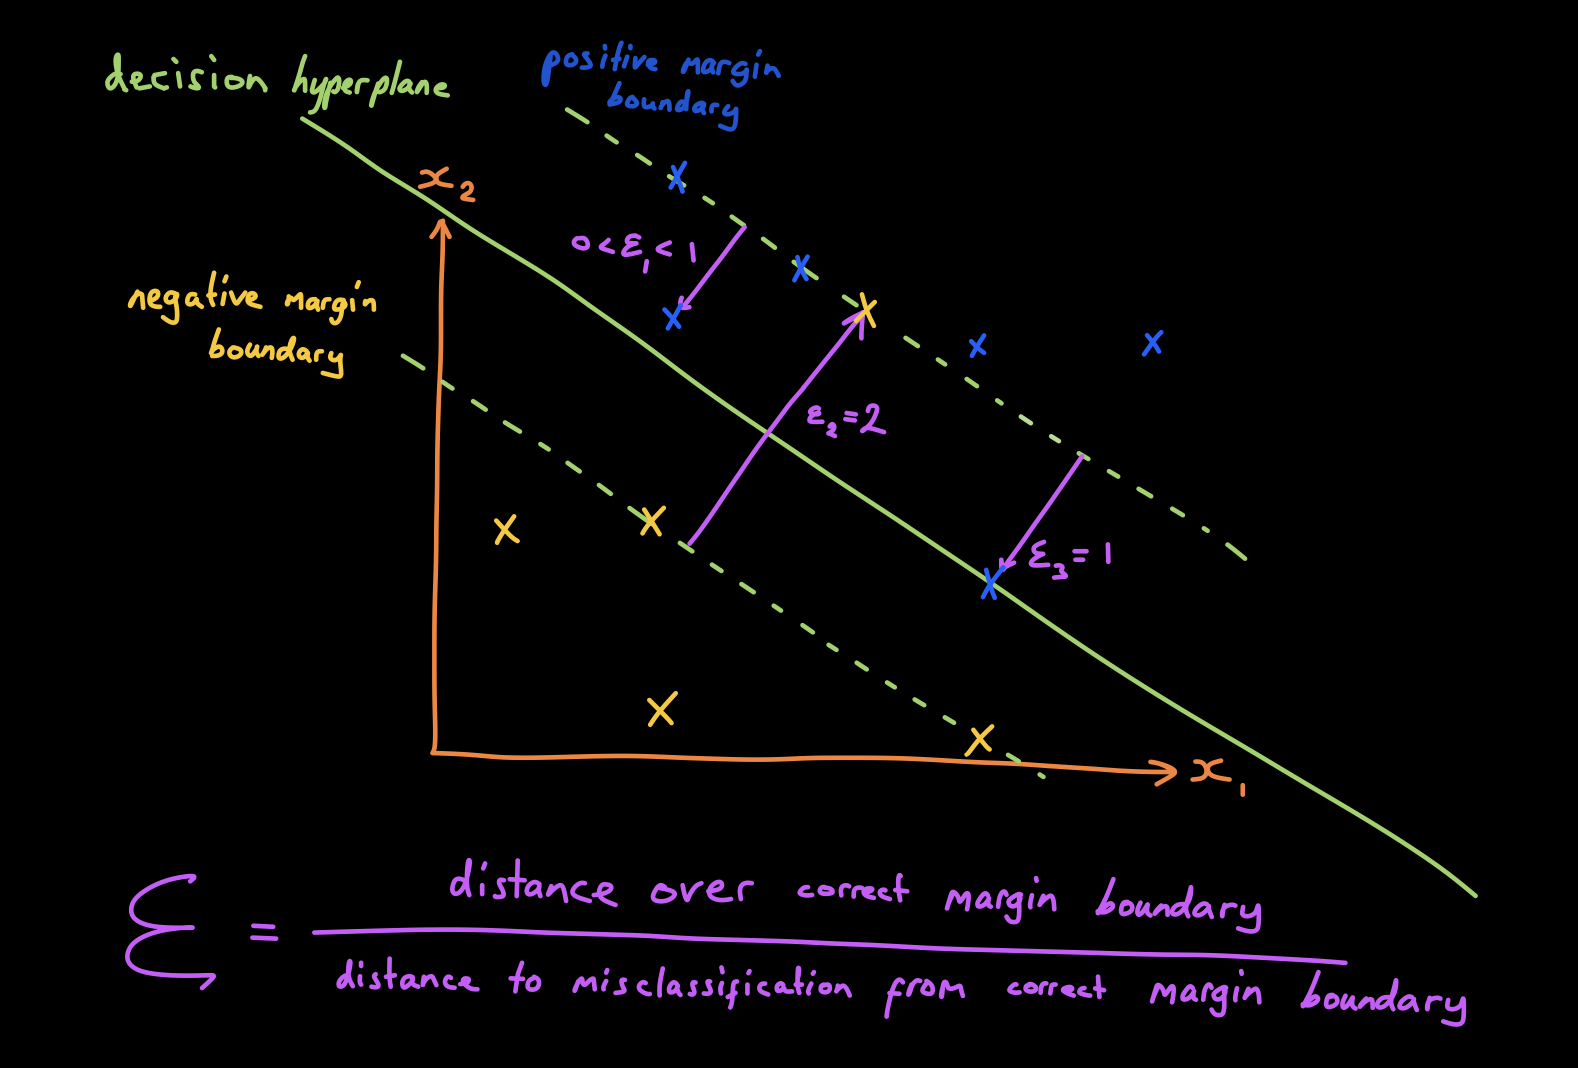 decision hyperplane
positive margin
boundary
x₂
0 < ε₁ < 1
negative margin
boundary
ε₂ = 2
ε₃ = 1
x₁
ε = distance over correct margin boundary
distance to misclassification from correct margin boundary